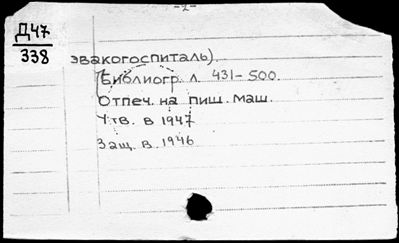 -2-
Д47
338
эвакогоспиталь).
(Библиогр. л. 431-500.
Отпеч. на пиш. маш.
Утв. в 1947
Защ. в. 1946